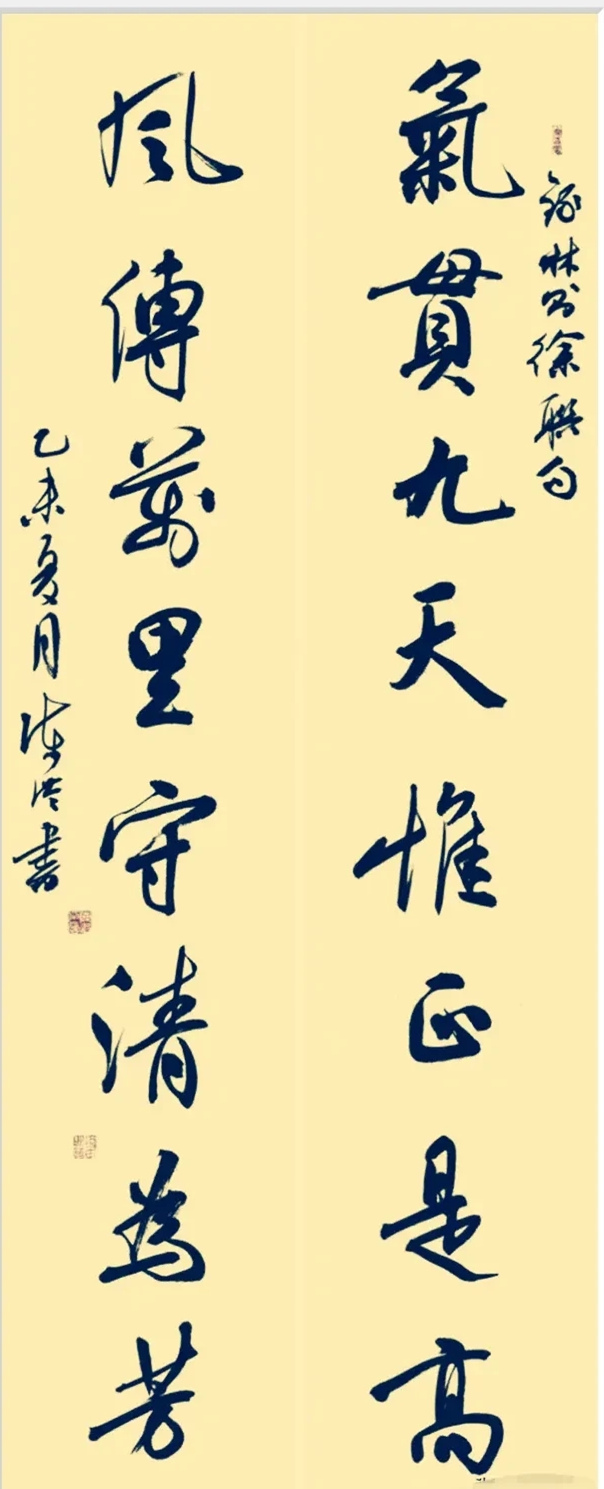 錄林則徐聯句
氣貫九天惟正是高
風傳萬里守清為芳
乙未夏月 書